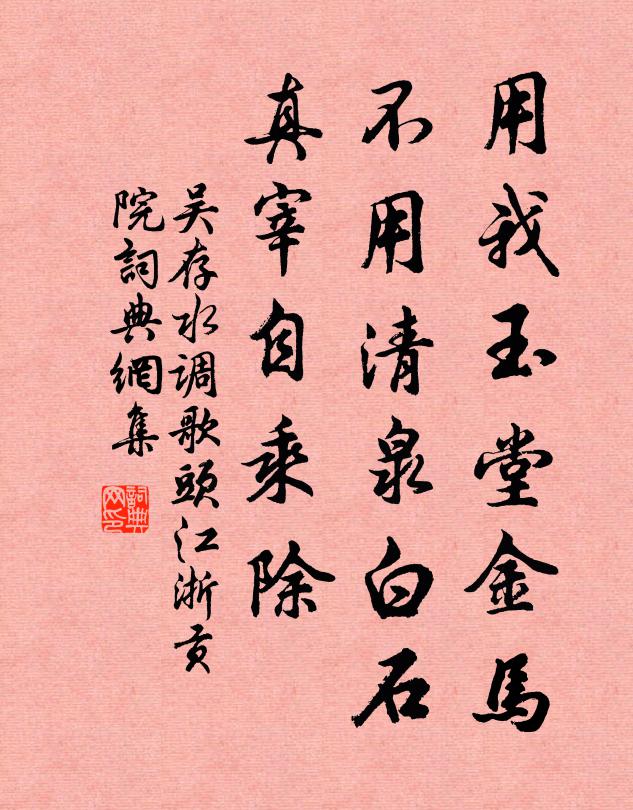 用我玉堂金馬
不用清泉白石
真宰自乘除
吴存水调歌頭江浙贡
院詞典網集
詞典網印